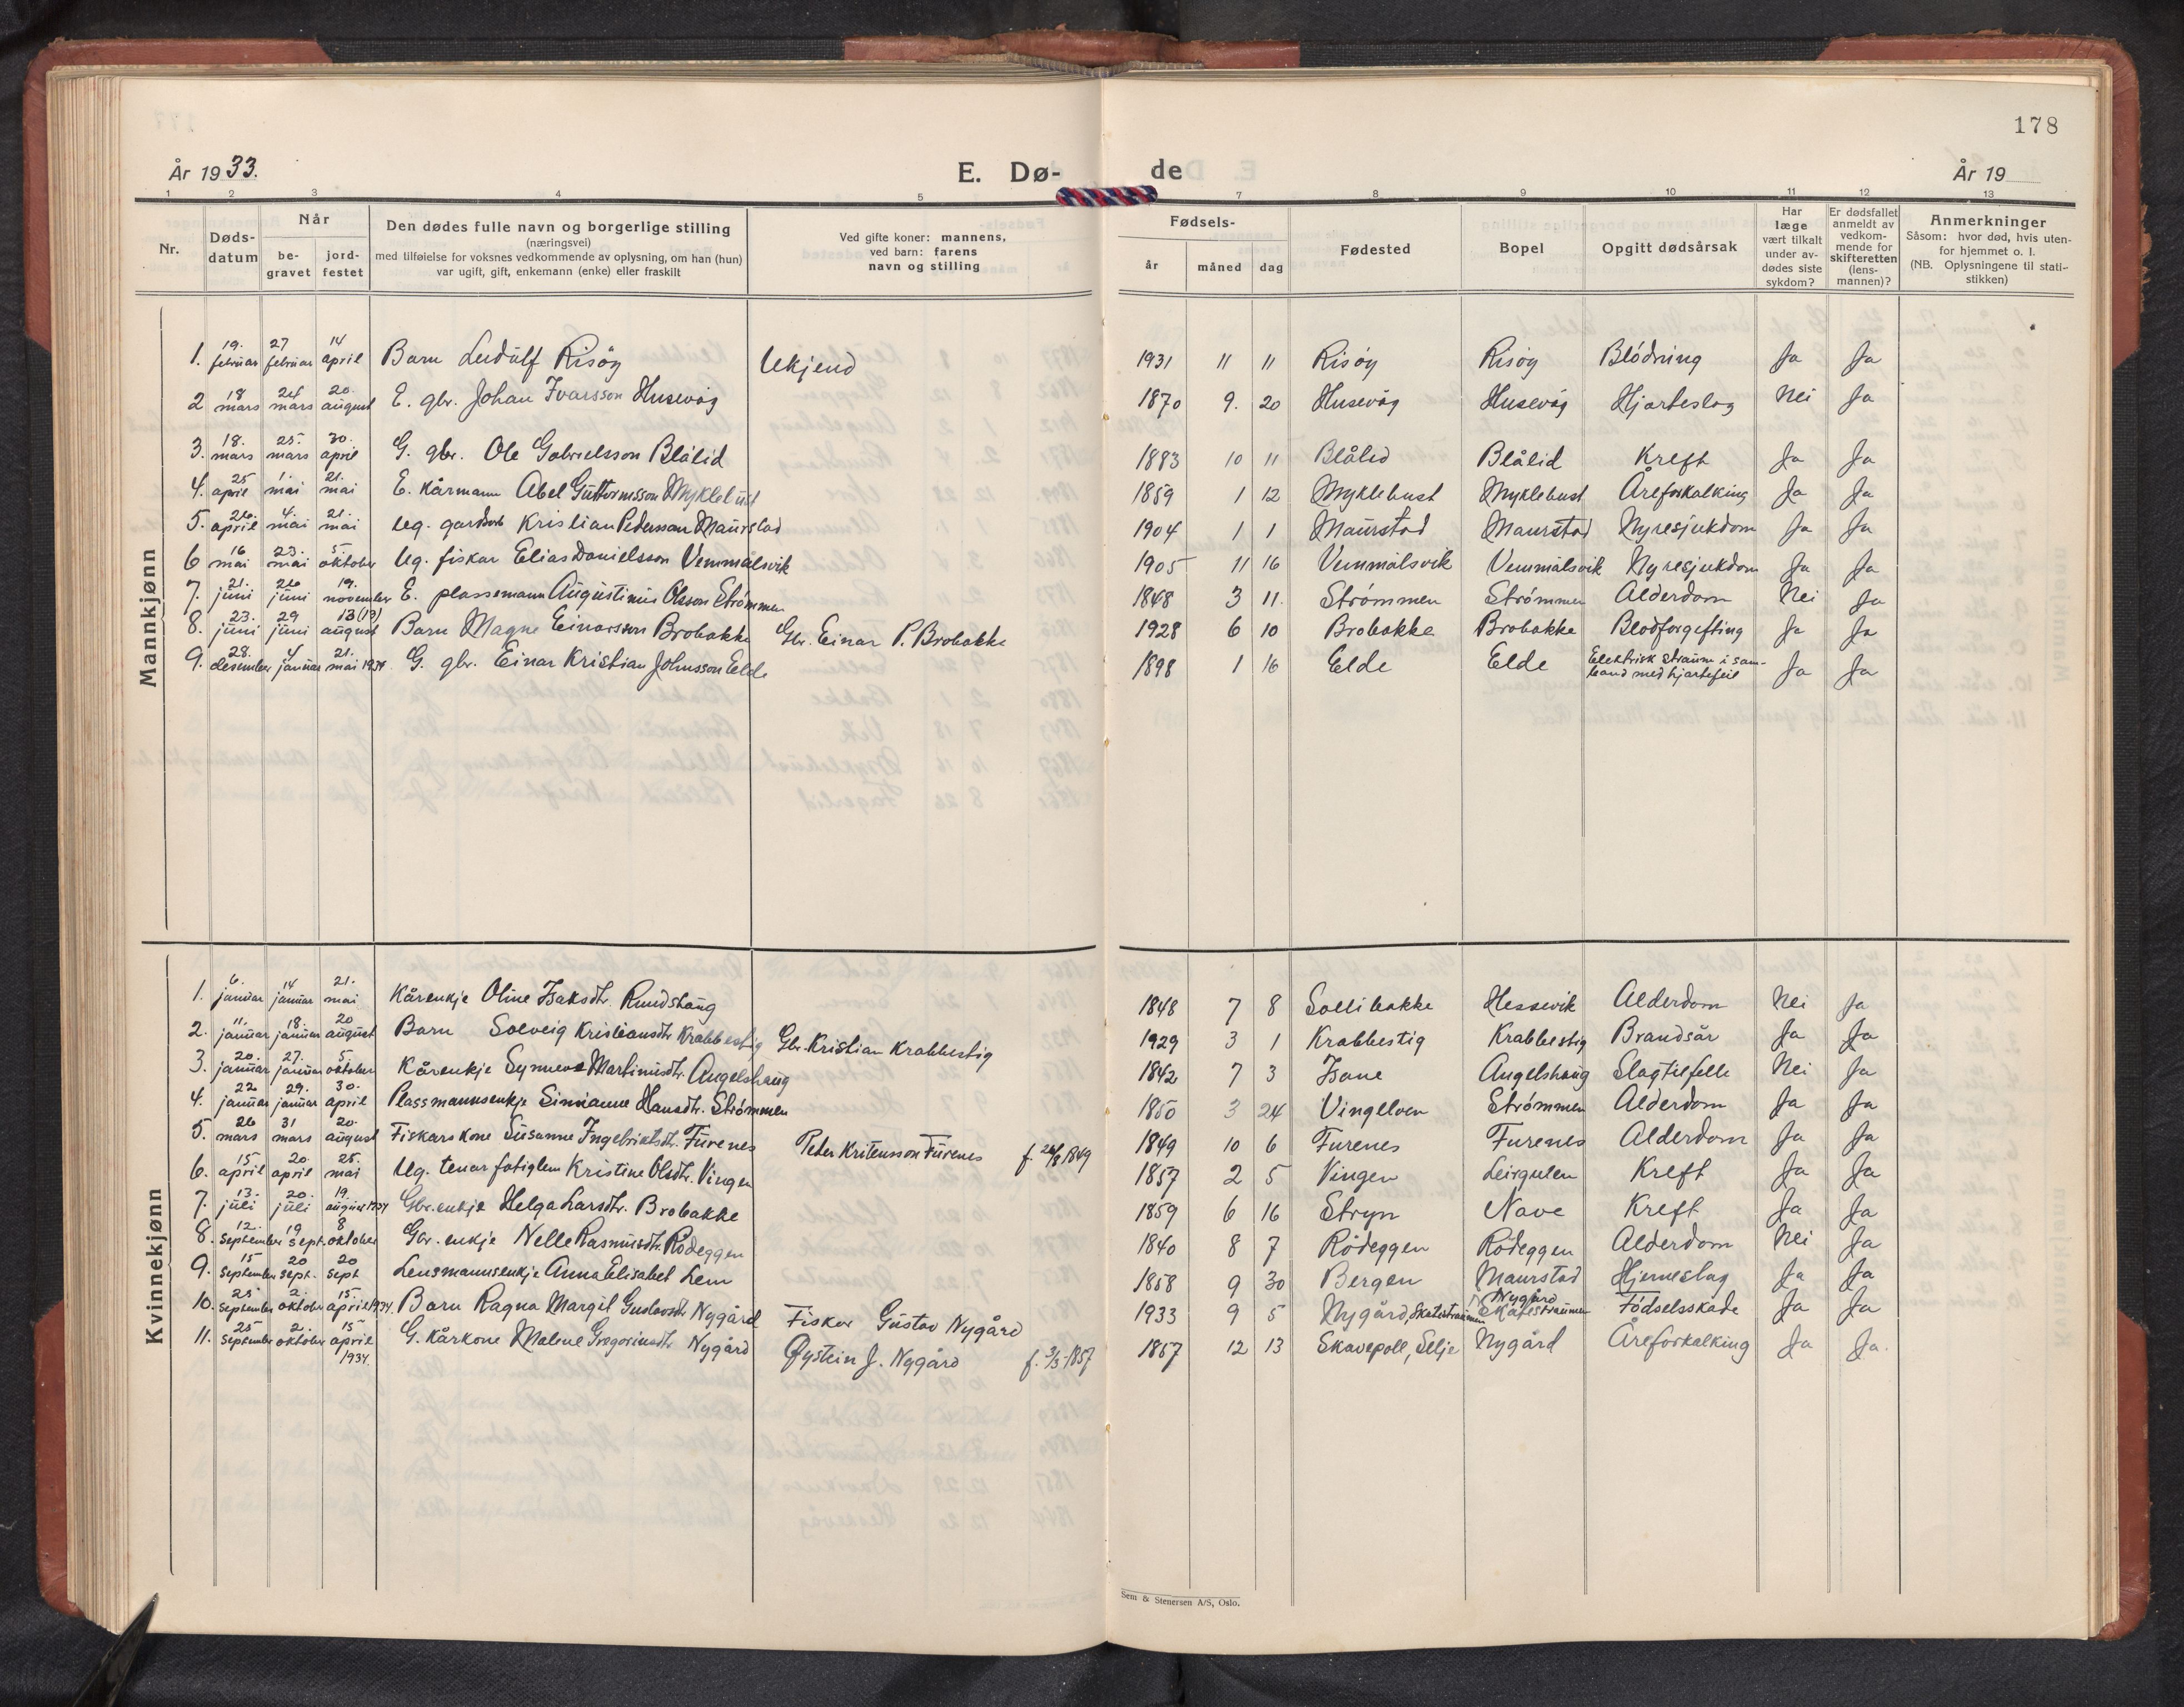 178
År 1933.
E. Dø-
de
År 19
1 2 3 4 5 7 8 9 10 11 12 13
Nr.
Døds-
datum
Når
be-
gravet
jord-
festet
Den dødes fulle navn og borgerlige stilling
(næringsvei)
med tilføielse for voksnes vedkommende av oplysning, om han (hun)
var ugift, gift, enkemann (enke) eller fraskilt
Ved gifte koner: mannens,
ved barn: farens
navn og stilling
Fødsels-
år
måned
dag
Fødested
Bopel
Opgitt dødsårsak
Har
læge
vært tilkalt
under av-
dødes siste
sykdom?
Er dødsfallet
anmeldt av
vedkom-
mende for
skifteretten
(lens-
mannen)?
Anmerkninger
Såsom: hvor død, hvis uten-
for hjemmet o. l.
(NB. Oplysningene til stati-
stikken)
Mannkjønn
1. 19. februar 27 februar 14 april Barn Ludulf Risöy Ukjend 1931 11 11 Risöy Risöy Blödning Ja Ja
2 18 mars 24 mars 20. august E. gbr. Johan Ivarsson Husevåg 1870 9. 20 Husevåg Husevåg Hjarteslag Nei Ja
3. 18. mars 25. mars 30. april G. gbr. Ole Gabrielsson Blålid 1883 10 11 Blålid Blålid Kreft Ja Ja
4. 25 april 1. mai 21. mai E. kårmann Abel Guttormsson Myklebust 1859 1 12 Myklebust Myklebust Åreforkalking Ja Ja
5. 26. april 4. mai 21. mai Ug. Kristian Pedersson Maurstad 1904 1 1 Maurstad Maurstad Nyresjukdom Ja Ja
6 16 mai 23. mai 5. oktober Ug. fiskar Elias Danielsson Vemmålsvik 1905 11 16 Vemmålsvik Vemmålsvik Nyresjukdom Ja Ja
7. 21. juni 26 juni 19. november E. plassemann Augustinus Olsson Strømmen 1848 3 11. Strømmen Strømmen Alderdom Nei Ja
8. 23. juni 29 juni 13 (13) august Barn Magne Einarsson Brobakke Gbr. Einar P. Brobakke 1928 6 10 Brobakke Brobakke Blodforgifting Ja Ja
9. 28. desember 4 januar 21. mai 1934. G. gbr. Einar Kristian Johnsson Elde 1898 1 16 Elde Elde Elektrisk straum i sam-
band med hjartefeil Ja Ja
Kvinnekjønn
1. 6. januar 14 januar 21. mai Kårenkje Oline Isaksdtr. Rundshaug 1848 7 8 Sollibakke Hessevik Alderdom Nei Ja
2. 11. januar 18. januar 20 august Barn Solveig Kristiansdtr. Krabbestig Gbr. Kristian Krabbestig 1929 3 1 Krabbestig Krabbestig Brandsår Ja Ja
3. 20. januar 27. januar 5. oktober Kårenkje Synneve Martinusdtr. Angelshaug 1842 7 3 Isane Angelshaug Slagtilfelle Nei Ja
4. 22 januar 29. januar 30. april Plassmannsenkje Simianne Hansdtr. Strømmen 1850 3 24 Vingelven Strømmen Alderdom Ja Ja
5. 26 mars 31 mars 20. august Fiskarskone Susanne Ingebriktsdtr. Furenes Peter Kritensson Furenes f. 26/8 1849 1849 10 6 Furenes Furenes Alderdom Ja Ja
6. 15 april 20. april 25. mai Ug. tenar fatiglem Kristine Olsdtr. Vingen 1857 2 5 Vingen Leirgulen Kreft Ja Ja
7. 13. juli 20. juli 19. august 1934 Gbr.enkje Helga Larsdtr. Brobakke 1859 6 16 Stryn Nave Kreft Ja Ja
8. 12. september 19 sept. 8 oktober Gbr. enkje Nelle Rasmusdtr. Rödeggen 1840 8 7 Rödeggen Rödeggen Alderdom Nei Ja
9. 15 september 20 sept. 20 sept Lensmannsenkje Anna Elisabet Lem 1858 9 30 Bergen Maurstad Hjerneslag Ja Ja
10. 25 september 2. oktober 15. april 1934. Barn Ragna Margit Gustavsdtr. Nygård Fiskar Gustav Nygård 1933 9 5 Nygård, Skatestraumen Nygård Skatestraumen Födselsskade Ja Ja
11. 25 september 2. oktober 15 april 1934. G. kårkone Malene Gregoriusdtr. Nygård Øystein J. Nygård f. 3/3-1857 1857 12 13 Skavepoll, Selje Nygård Åreforkalking Ja Ja.
Sem & Stenersen A/S, Oslo.